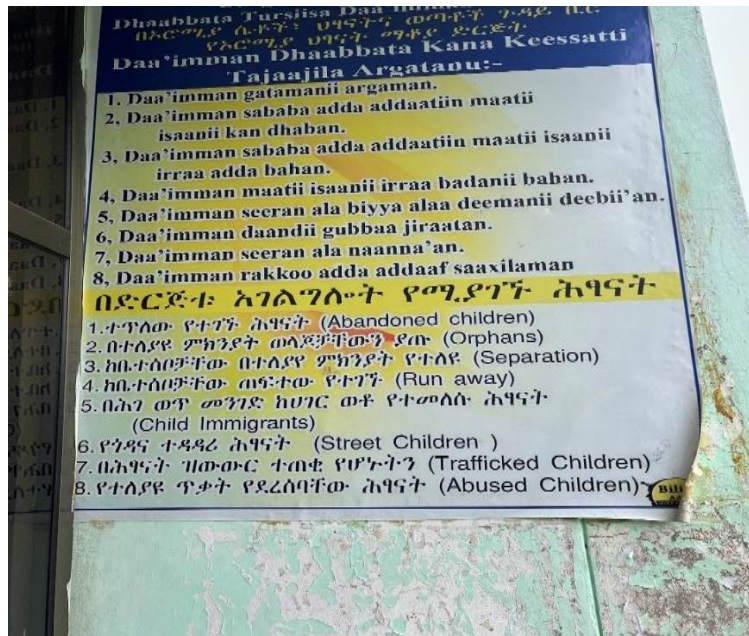 Dhaabbata Tursiisa Daa'imm
በኦሮሚያ ሴቶች፣ ህፃናትና ወጣቶች ጉዳይ ቢሮ
የኦሮሚያ ህፃናት ማቆያ ድርጅት
Daa'imman Dhaabbata Kana Keessatti
Tajaajila Argatanu:-
1. Daa'imman gatamanii argaman.
2, Daa'imman sababa adda addaatiin maatii
isaanii kan dhaban.
3, Daa'imman sababa adda addaatiin maatii isaanii
irraa adda bahan.
4, Daa'imman maatii isaanii irraa badanii bahan.
5, Daa'imman seeran ala biyya alaa deemanii deebii'an.
6, Daa'imman daandii gubbaa jiraatan.
7, Daa'imman seeran ala naanna'an.
8, Daa'imman rakkoo adda addaaf saaxilaman
በድርጅቱ አገልግሎት የሚያገኙ ሕፃናት
1.ተጥለው የተገኙ ሕፃናት (Abandoned children)
2.በተለያዩ ምክንያት ወላጆቻቸውን ያጡ (Orphans)
3.ከቤተሰቦቻቸው በተለያየ ምክንያት የተለዩ (Separation)
4.ከቤተሰቦቻቸው ጠፍተው የተገኙ (Run away)
5.በሕገ ወጥ መንገድ ከሀገር ወቶ የተመለሱ ሕፃናት
(Child Immigrants)
6.የጎዳና ተዳዳሪ ሕፃናት (Street Children )
7.በሕፃናት ዝውውር ተጠቂ የሆኑትን (Trafficked Children)
8.የተለያዩ ጥቃት የደረሰባቸው ሕፃናት (Abused Children)